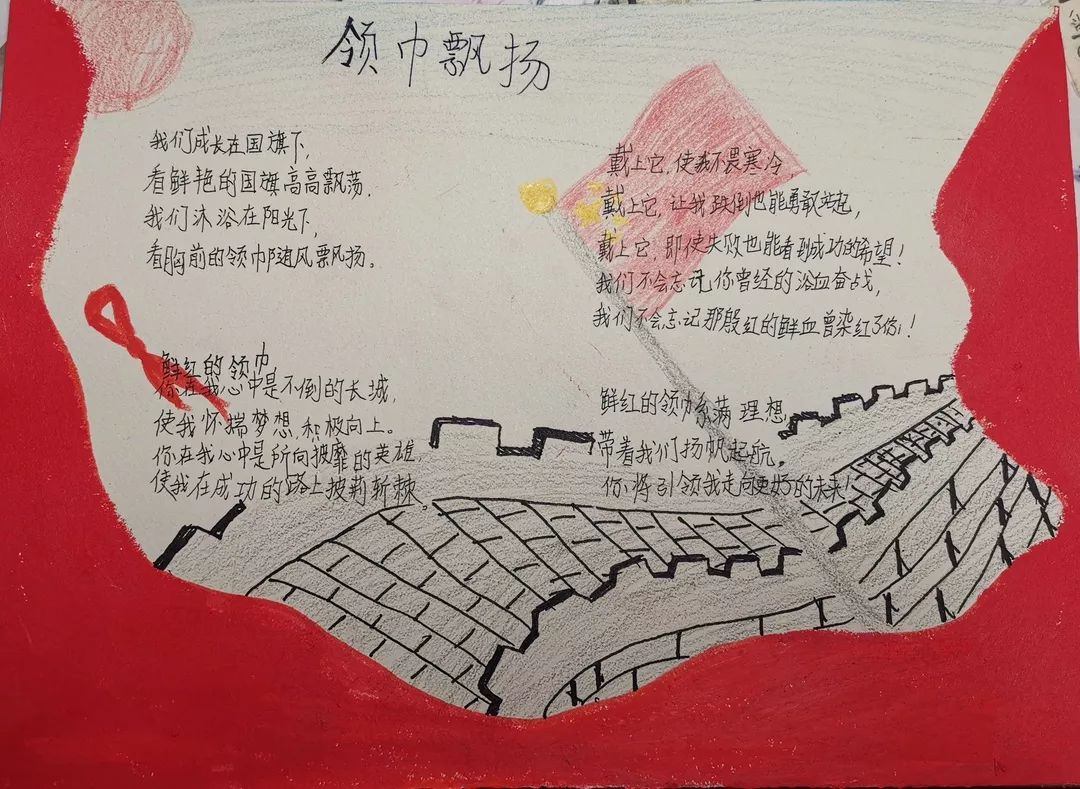 领巾飘扬
我们成长在国旗下,
看鲜艳的国旗高高飘荡.
我们沐浴在阳光下,
看胸前的领巾随风飘扬。
鲜红的领巾
你在我心中是不倒的长城,
使我怀揣梦想,积极向上。
你在我心中是所向披靡的英雄,
使我在成功的路上披荆斩棘
戴上它,使我不畏寒冷
戴上它,让我跌倒也能勇敢站起,
戴上它,即使失败也能看到成功的希望!
我们不会忘记你曾经的浴血奋战,
我们不会忘记那殷红的鲜血曾染红了你!
鲜红的领巾 满理想
带着我们扬帆起航,
你将引领我走向更好的未来!